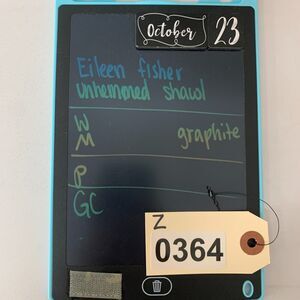 October 23
Eileen fisher
Unhemmed shawl
W
M graphite
P
GC
Z
0364